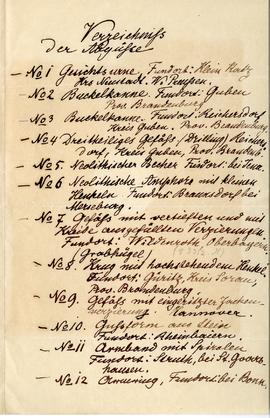 Verzeichniss
der Abgüsse
No 1 Gesichtsurne Fundort: Klein Katz
Krs Neustadt. W. Preussen.
No 2 Buckelkanne. Fundort: Guben
Prov. Brandenburg
No 3 Buckelkanne. Fundort: Reichersdorf
Kreis Guben. Prov. Brandenburg
No 4 Dreitheiliges Gefäss, Drilling, Reichers
dorf, Kreis Guben, Prov. Brandenb.
No 5. Neolithischer Becher Fundort: bei
No 6 Neolithische Amphora mit kleinen
Henkeln Fundort: Braunsdorf bei
Merseburg.
No 7. Gefäss mit vertieften und mit
Kreide ausgefüllten Verzierungen
Fundort: Wildenroth Oberbayern
(Grabhügel)
No 8. Krug mit hochstehendem Henkel
Fundort: Göritz, Kreis Sorau,
Prov. Brandenburg
No 9. Gefäss mit eingeritzter Zacken-
verzierung Hannover.
No 10. Gussform aus Stein
Fundort: Rheinbaiern
No 11 Armband mit Spiralen
Fundort: Struth, bei St. Goars-
hausen.
No 12 Armring, Fundort: bei Bonn.